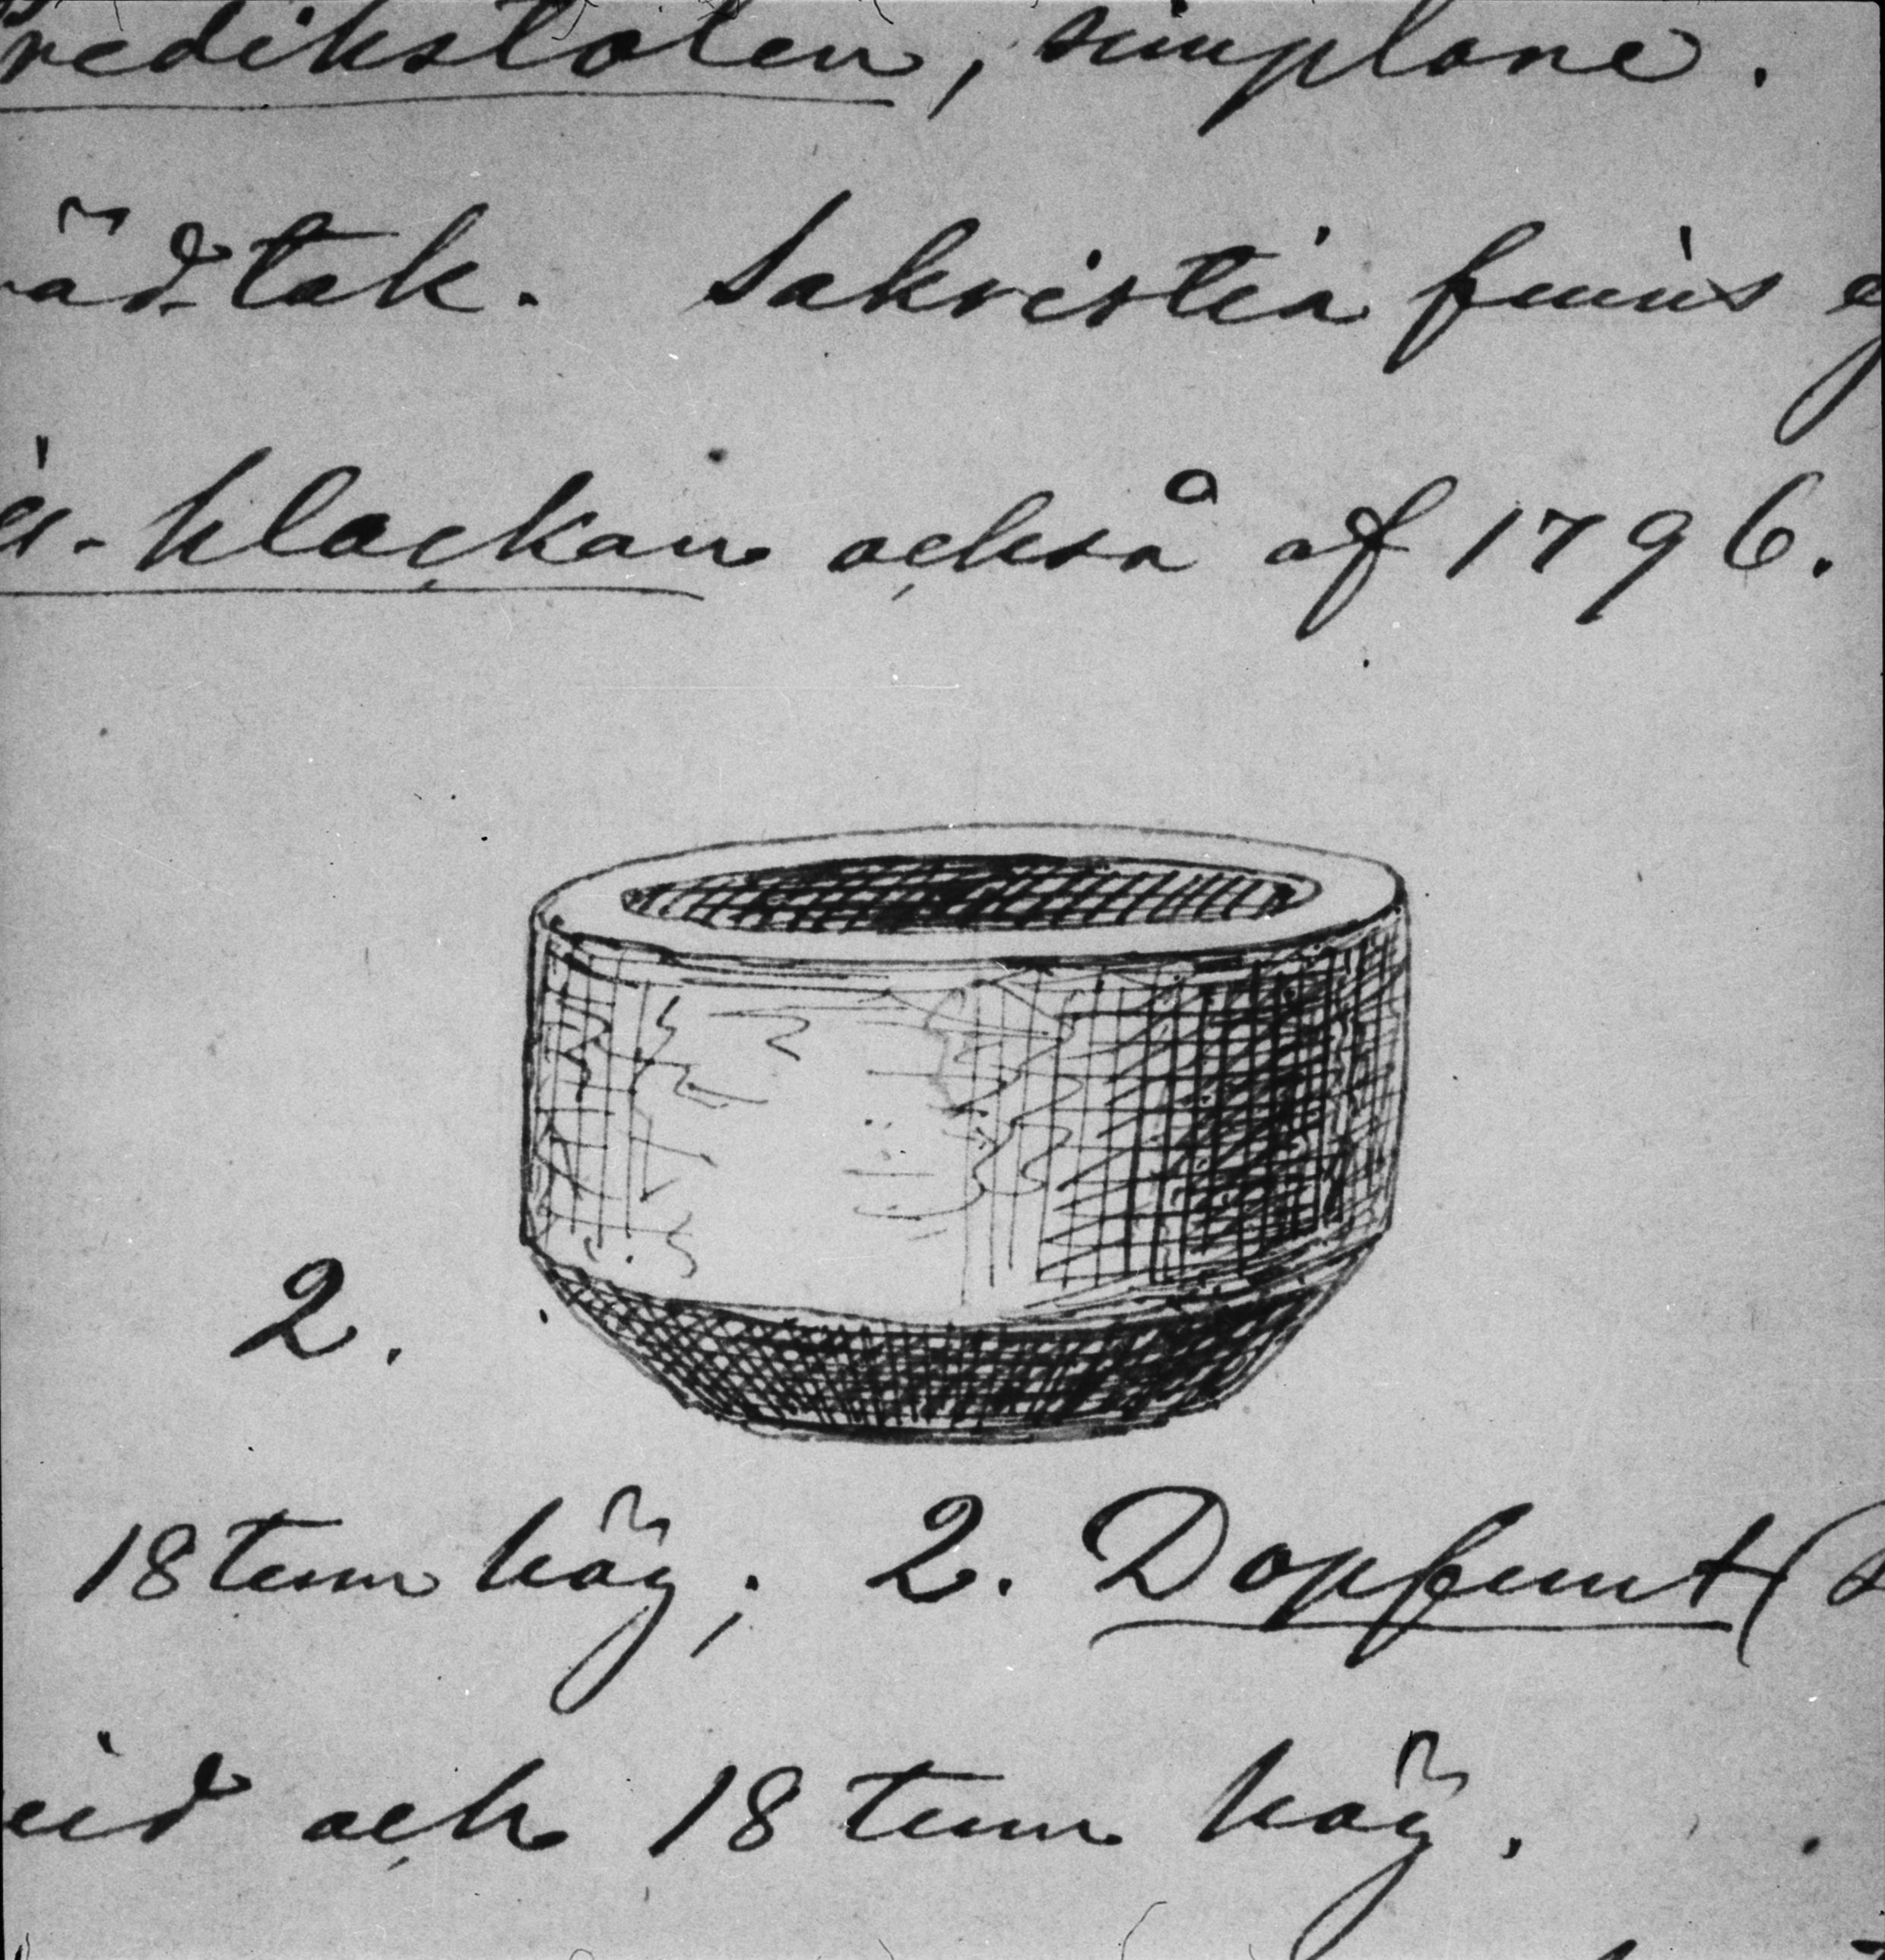 redikstolen, simplare.
ädtak. Sakristia finns ej
klockan också af 1796.
2.
18 tum hög; 2. Dopfunt (
och 18 tum hög.